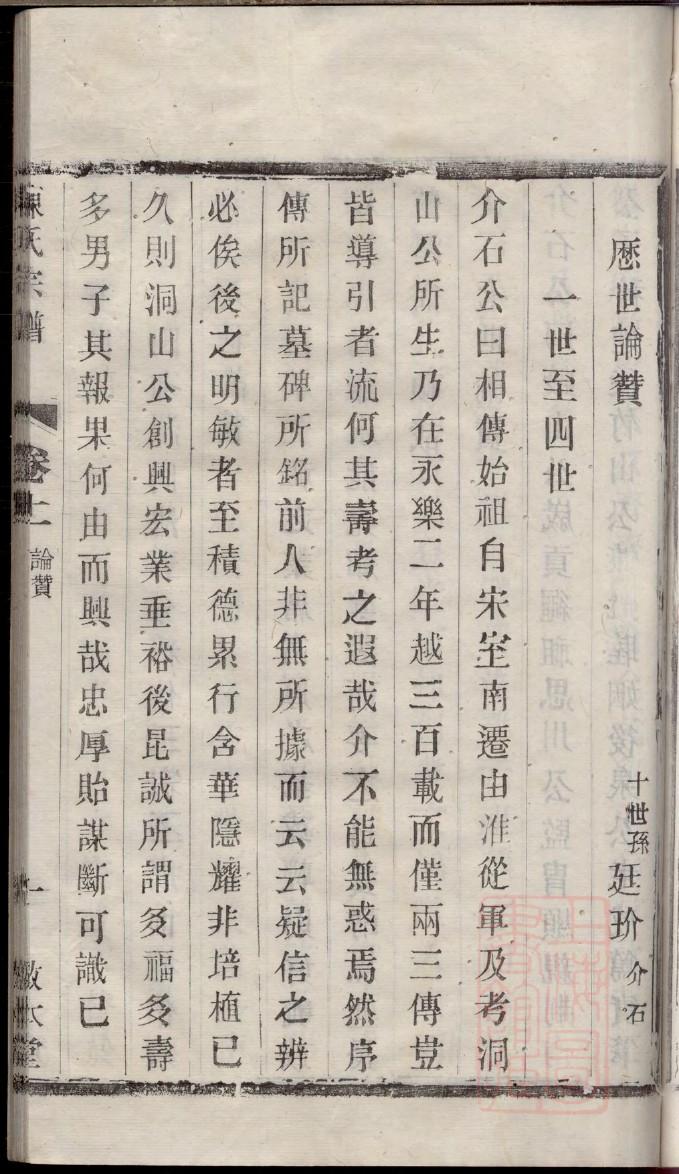 歷世論贊　十世孫廷玠介石
一世至四世
介石公曰相傳始祖自宋室南遷由淮從軍及考洞
山公所生乃在永樂二年越三百載而僅兩三傳豈
皆導引者流何其壽考之遐哉介不能無惑焉然序
傳所記墓碑所銘前人非無所據而云云疑信之辨
必俟後之明敏者至積德累行含華隱耀非培植已
久則洞山公創興宏業垂裕後昆誠所謂多福多壽
多男子其報果何由而興哉忠厚貽謀斷可識已
陳氏宗譜　卷十二　論贊　一　敬本堂